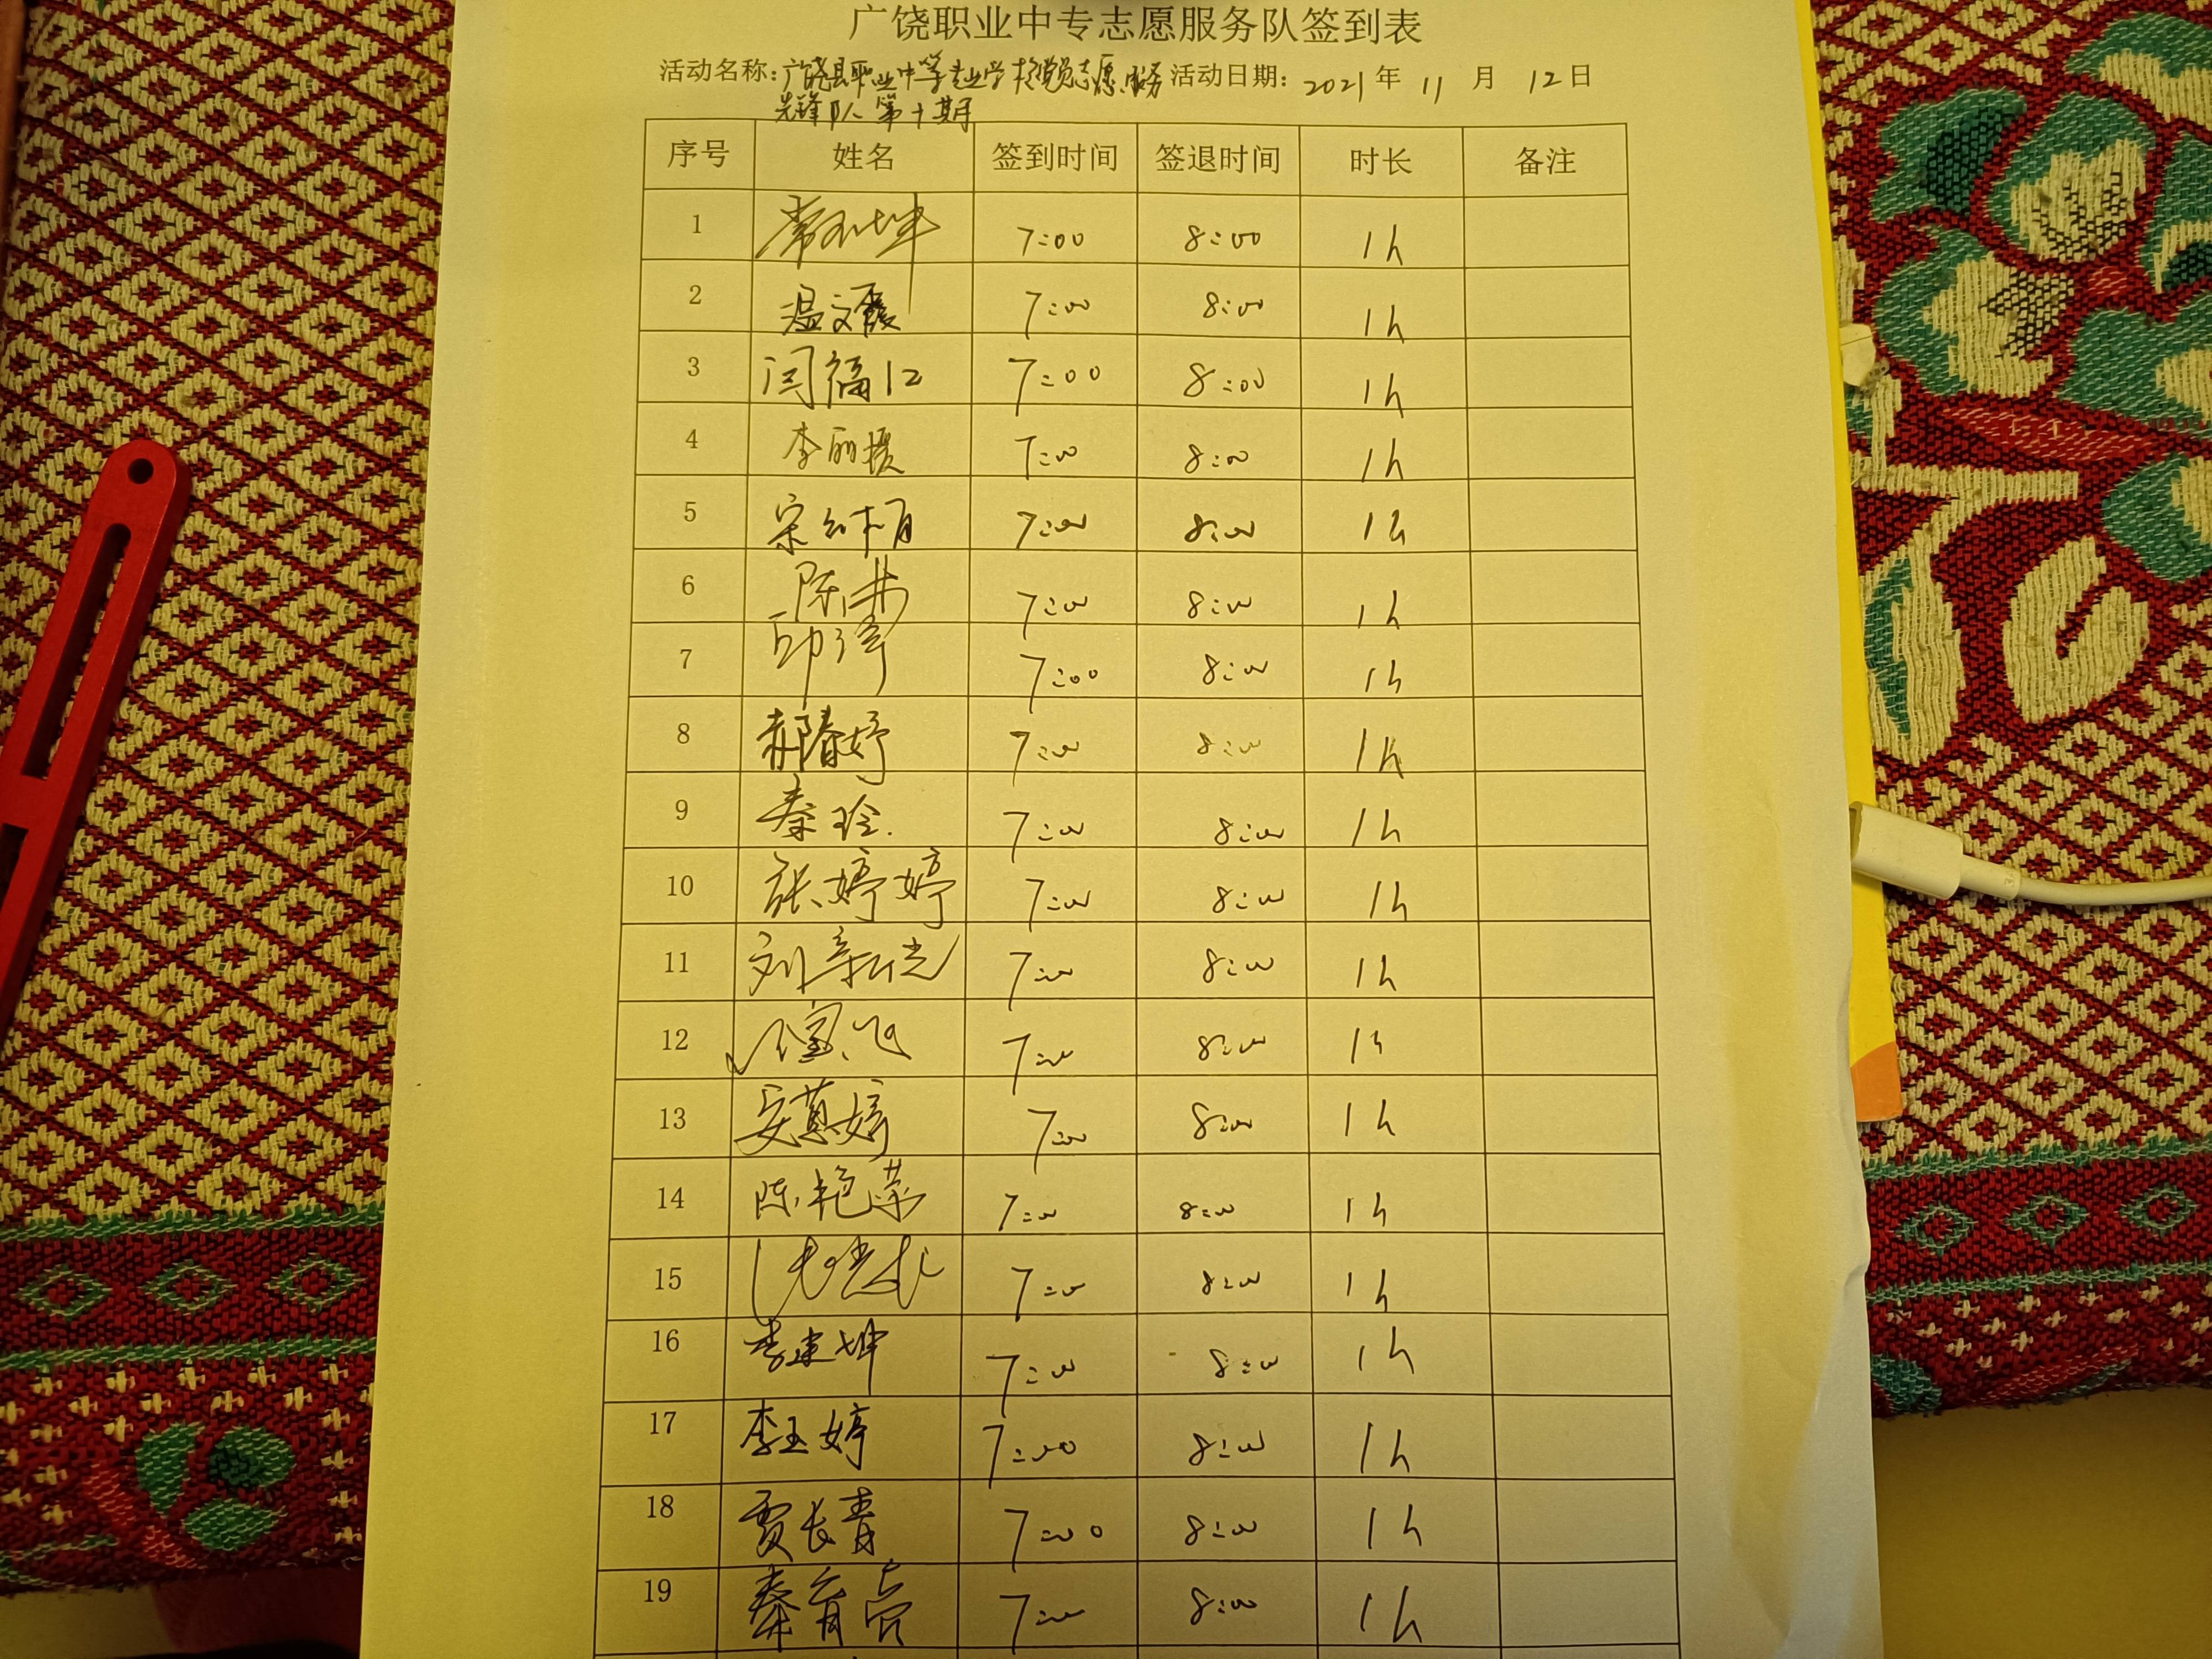 广饶职业中专志愿服务队签到表
活动名称：广饶县职业中等专业学校党员志愿服务 活动日期： 2021 年 11 月 12 日
先锋队第十期
序号 姓名 签到时间 签退时间 时长 备注
1 7:00 8:00 1h
2 温文霞 7:00 8:00 1h
3 闫福仁 7:00 8:00 1h
4 李丽媛 7:00 8:00 1h
5 7:00 8:00 1h
6 7:00 8:00 1h
7 7:00 8:00 1h
8 郝春妤 7:00 8:00 1h
9 秦玲 7:00 8:00 1h
10 张婷婷 7:00 8:00 1h
11 刘新光 7:00 8:00 1h
12 7:00 8:00 1h
13 7:00 8:00 1h
14 陈艳荣 7:00 8:00 1h
15 7:00 8:00 1h
16 李建坤 7:00 8:00 1h
17 李玉婷 7:00 8:00 1h
18 贾长青 7:00 8:00 1h
19 秦育亮 7:00 8:00 1h